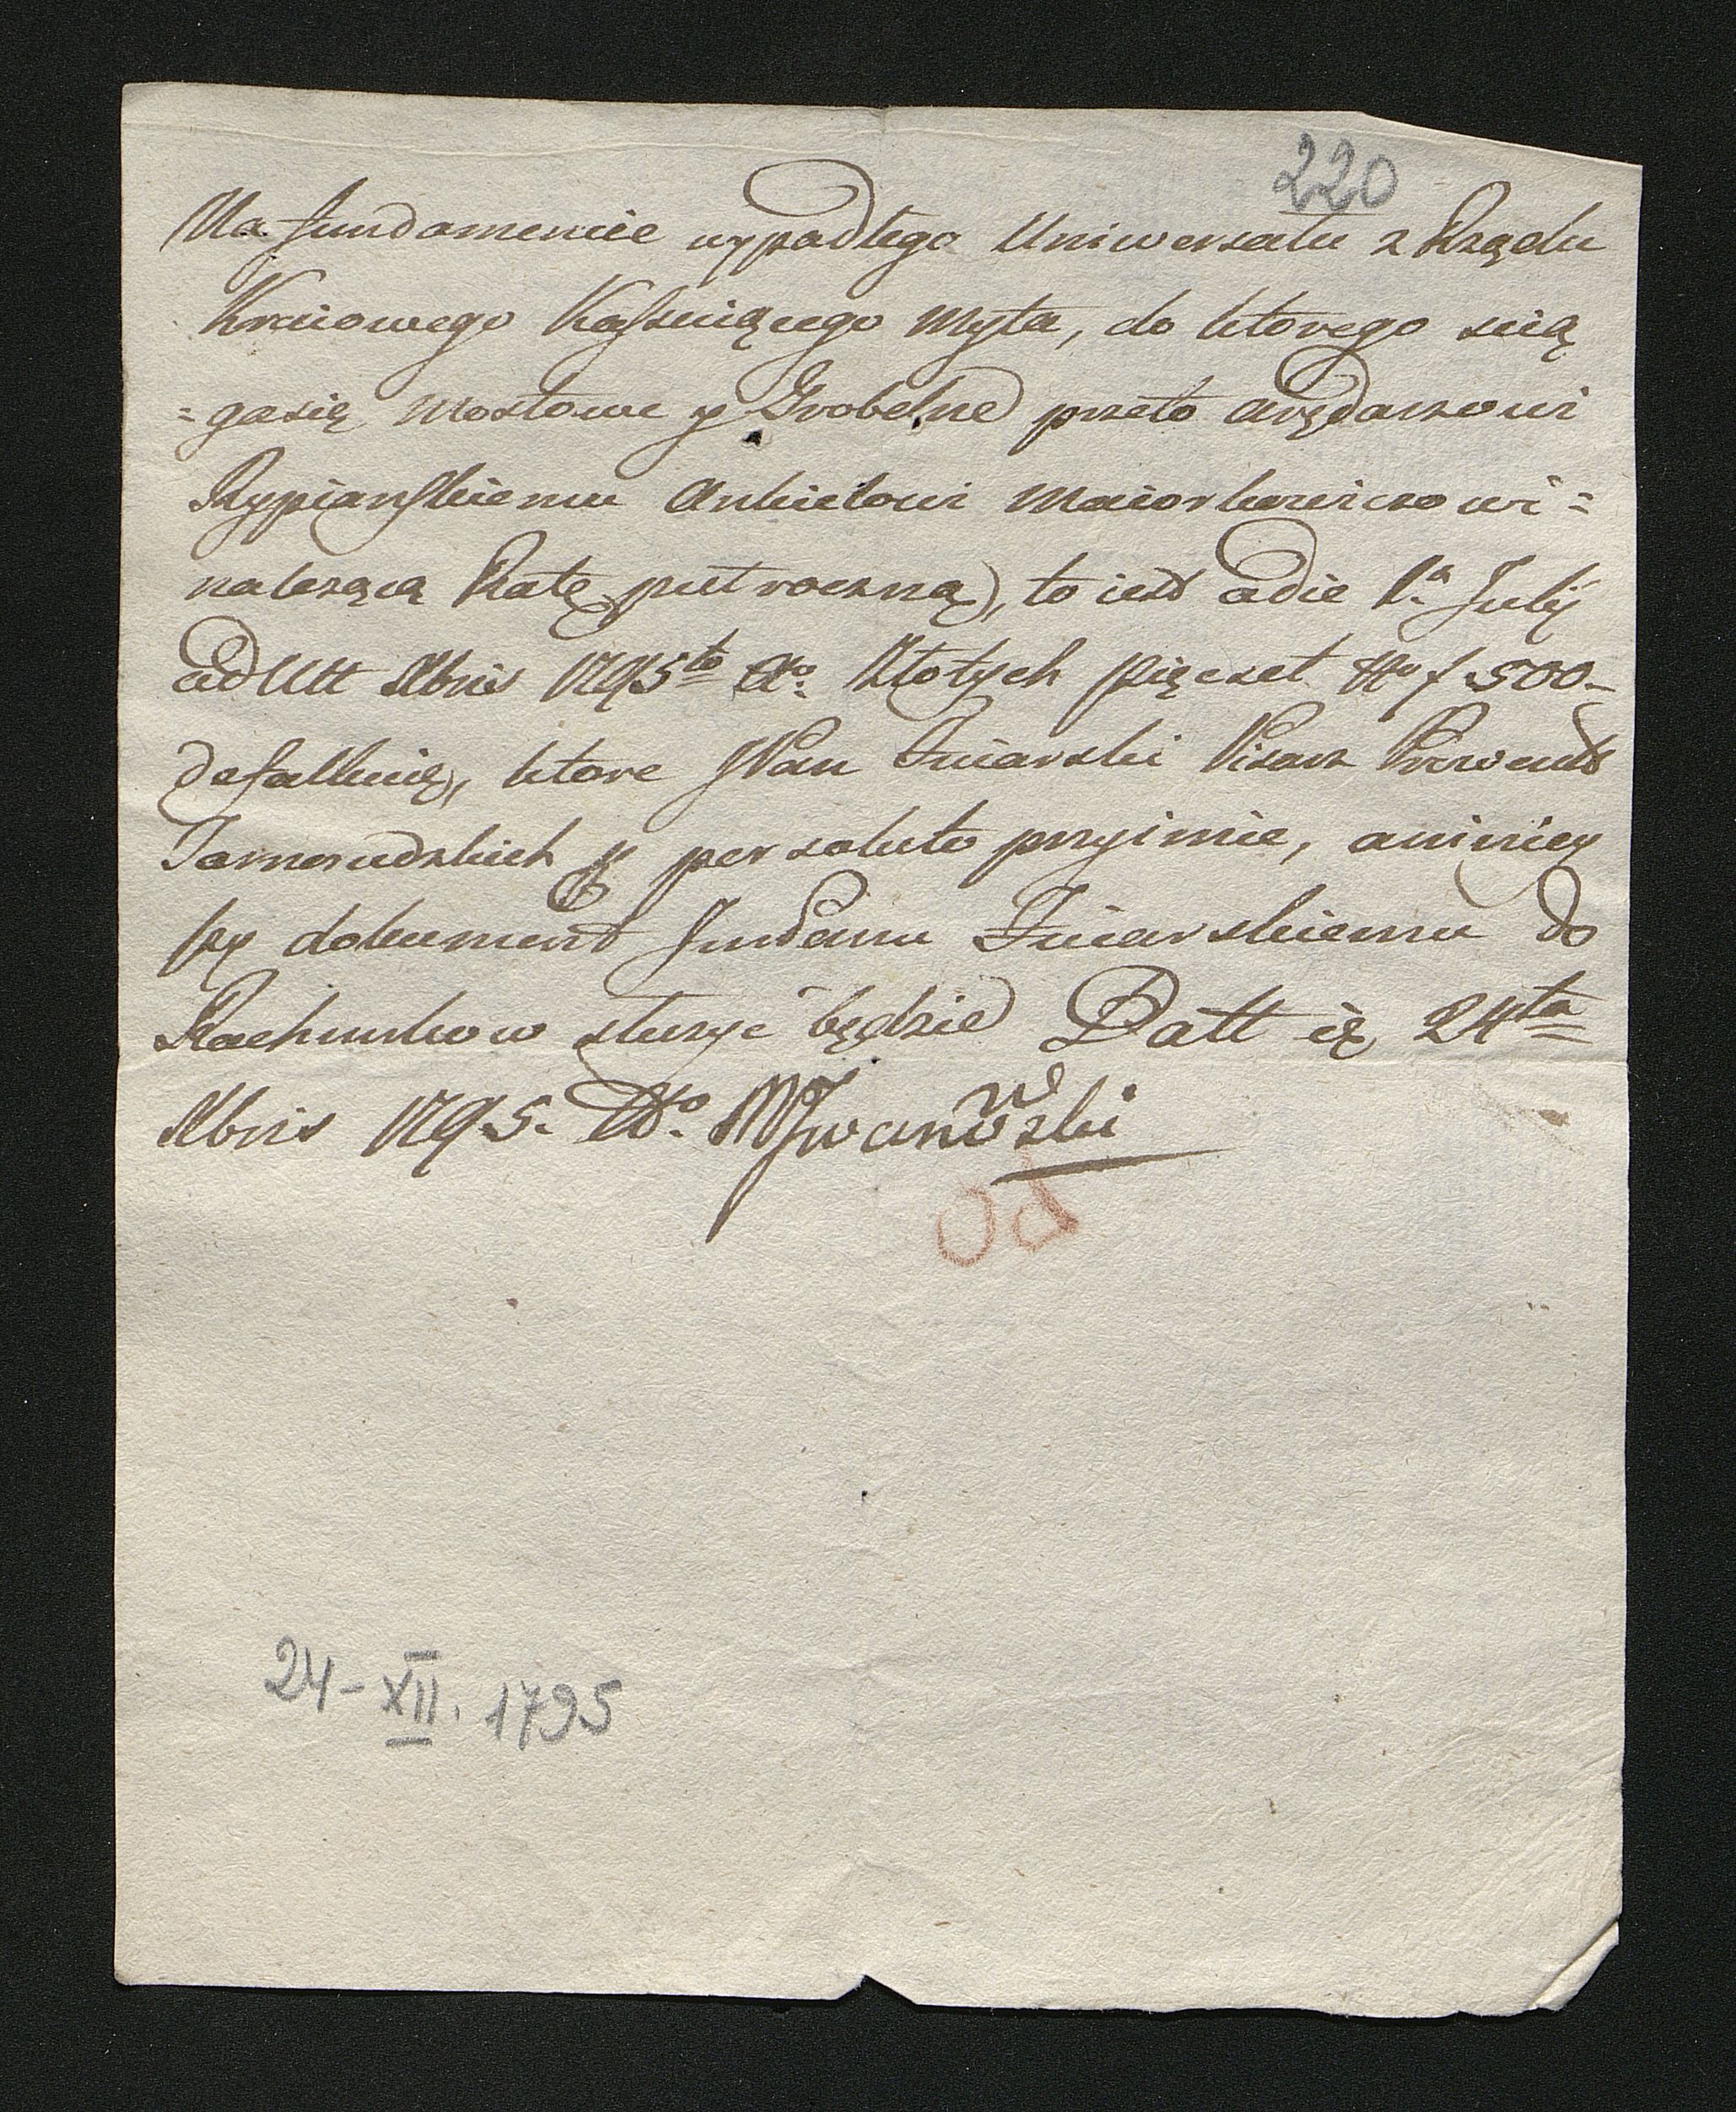 220
Na fundamencie wypadłego Uniwersału z Rządu
Kraiowego Kassuiącego Myta, do ktorego ścią
=gasię mostowe y Grobelne przeto arędarzowi
Rypiańskiemu Ankielowi Maiorkowiczowi=
należącą Ratę puł roczną, to iest adie 1a July
ad Ult Xbris 1795to Ao. Złotych pięcset No f 500-
defalkuię, ktore JPan Zuiarski Pisarz Prowent
Tarnorudzkich y per soluto przyimie, a niniey
szy dokument Jmć Panu Zuiarskiemu do
Rachunkow służyć będzie Datt ie 24ta
Xbris 1795. Ao. MJwanowski
od
24-XII. 1795